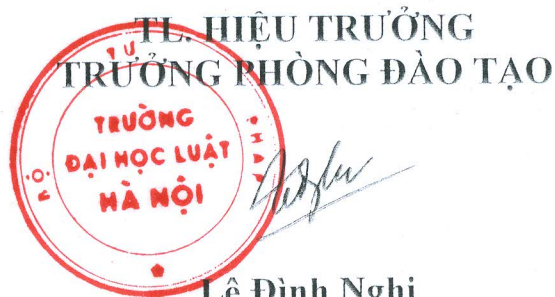 TL. HIỆU TRƯỞNG
TRƯỞNG PHÒNG ĐÀO TẠO
BỘ TƯ PHÁP
TRƯỜNG
ĐẠI HỌC LUẬT
HÀ NỘI
Lê Đình Nghị